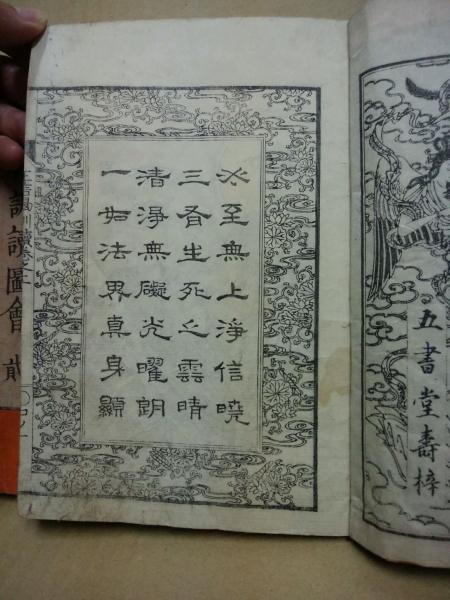 五書堂壽梓
必至無上淨信曉
三有生死之雲晴
清淨無礙光曜朗
一如法界真身顯
讀圖會 貳